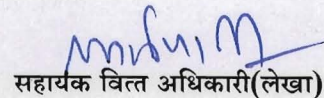 सहायक वित्त अधिकारी(लेखा)